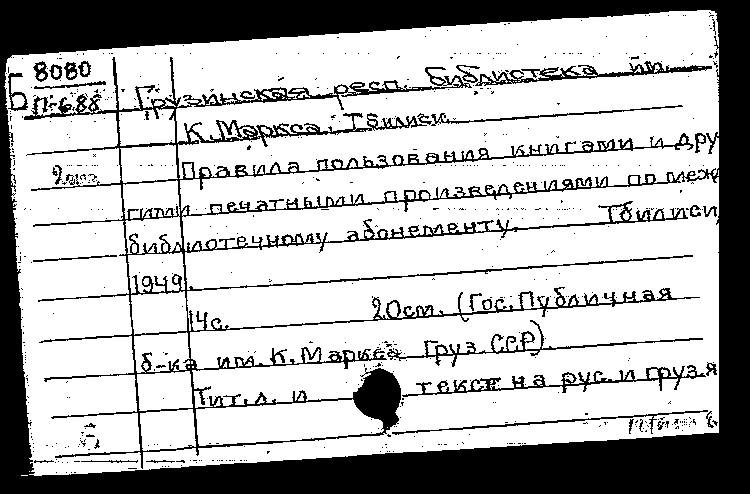 Б 8080
П-688
Грузинская респ. библиотека им.
К. Маркса. Тбилиси.
Правила пользования книгами и дру
гими печатными произведениями по меж
библиотечному абонементу. Тбилиси,
1949.
14с. 20см. (Гос. Публичная
б-ка им. К. Маркса Груз. ССР).
Тит. л. и текст на рус. и груз. я
Б